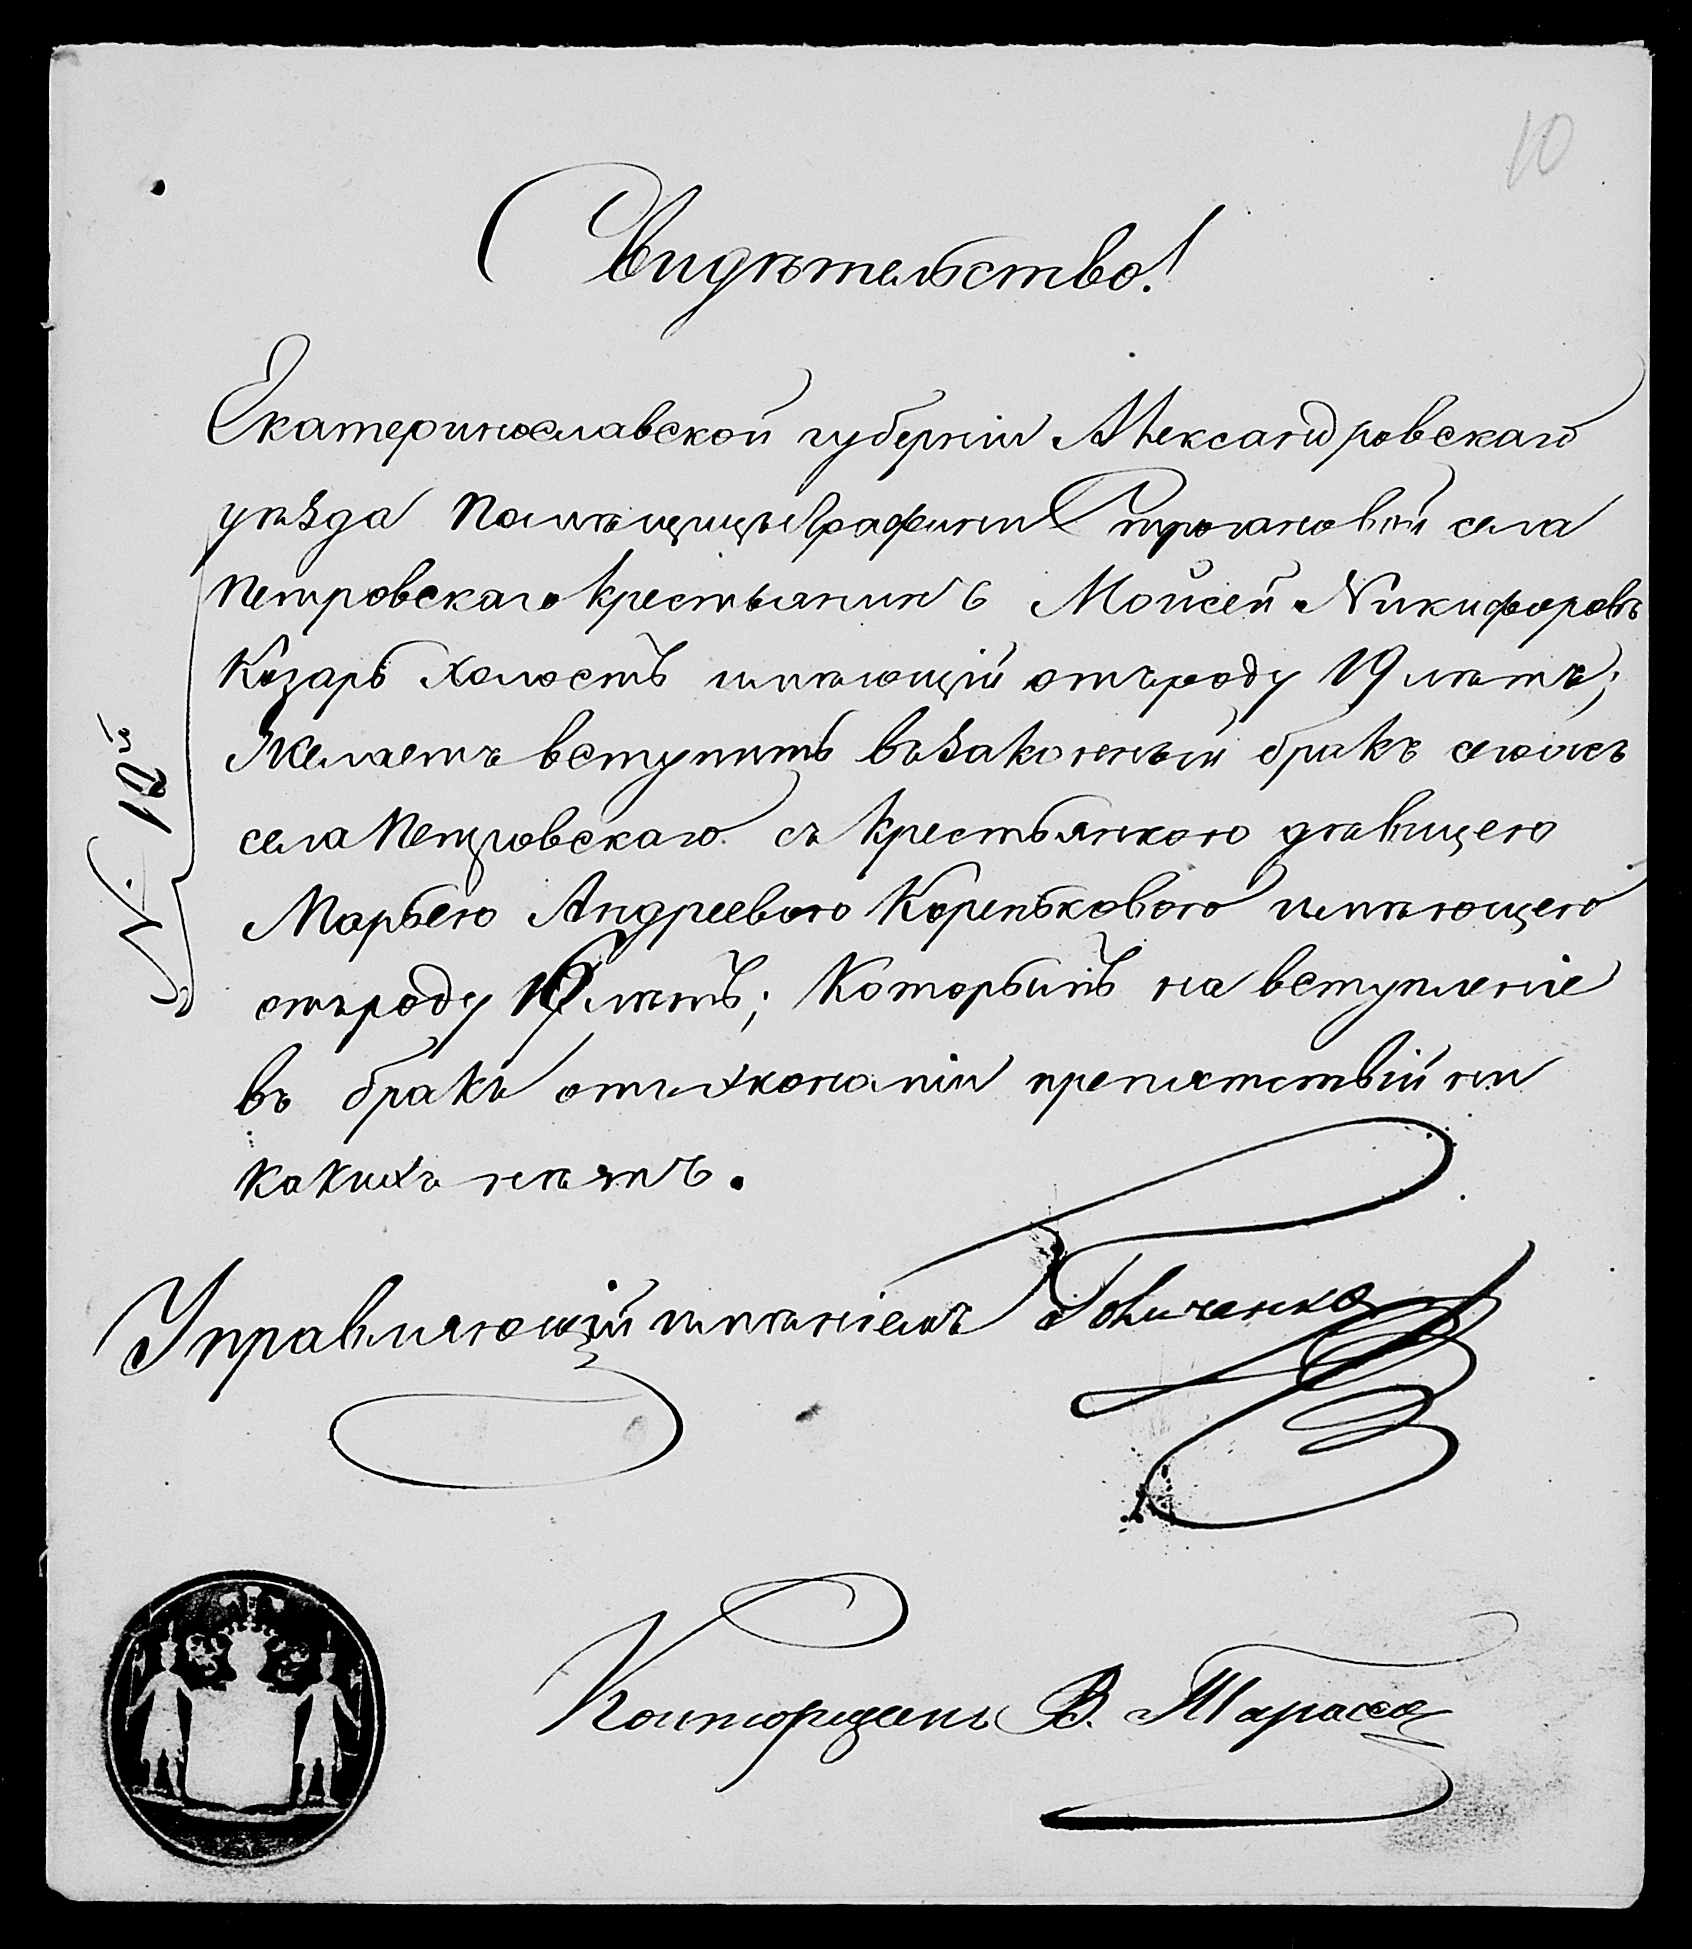 10
Свидѣтельство!
Екатеринославской губерніи Александровскаго
уѣзда помѣщицы Графини Строгановой села
Петровскаго крестьянинъ Моисей Никифоровъ
Козарь холостъ имѣющій отъ роду 19 лѣтъ;
Желаетъ вступить въ законный бракъ
села Петровскаго съ крестьянкою дѣвицею
Марьею Андреевою Кореньковою имѣющею
отъ роду лѣтъ; Которымъ на вступленіе
въ бракъ отъ Экономіи препятствій ни
какихъ нѣтъ.
№ 10й
Управляющій имѣніемъ
Конторщикъ В.